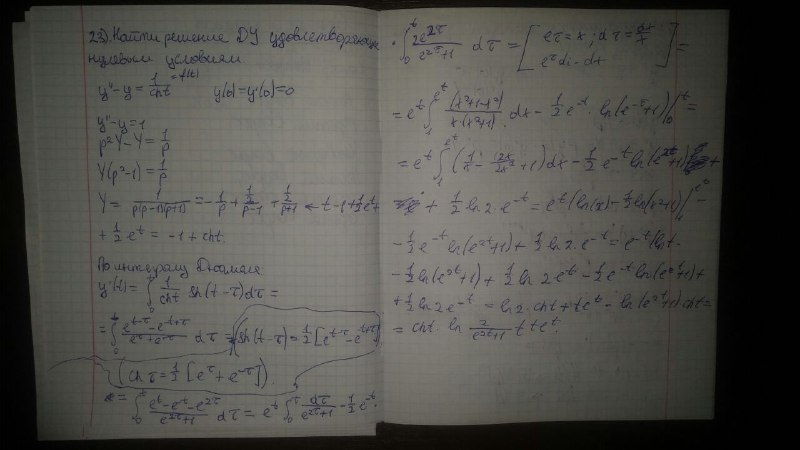 23). Найти решение ДУ удовлетворяющее
нулевым условиям
y'' - y = 1/cht = f(t) y(0) = y'(0) = 0
y'' - y = 1
p²Y - Y = 1/p
Y(p² - 1) = 1/p
Y = 1/(p(p-1)(p+1)) = -1/p + (1/2)/(p-1) + (1/2)/(p+1)
+ 1/2 e^-t = -1 + cht.
По интегралу Дюамеля
y(t) = ∫₀^t 1/chτ sh(t-τ)dτ =
= ∫₀^t (e^(t-τ) - e^(-t+τ))/(e^τ + e^-τ) dτ = (sh(t-τ) = 1/2 [e^(t-τ) - e^(-t+τ)])
(chτ = 1/2 [e^τ + e^-τ]).
dτ = e^t ∫₀^t dτ/(e^2τ+1) - 1/2 e^-t ·
· ∫₀^t 2e^2τ/(e^2τ+1) dτ = [e^τ = x; dτ = dx/x
e^τ dτ = dx] =
= e^t ∫₁^e^t (x²+1-x²)/(x·(x²+1)) dx - 1/2 e^-t · ln(e^2τ+1)|₀^t =
= e^t ∫₁^e^t dx - 1/2 e^-t ln(e^2t+1) +
+ 1/2 ln2·e^-t = e^t (ln(x) - 1/2 ln(x²+1))|₁^e^t -
- 1/2 e^-t ln(e^2t+1) + 1/2 ln2·e^-t =
- 1/2 ln(e^2t+1) + 1/2 ln2 e^t - 1/2 e^-t ln(e^2t+1) +
+ 1/2 ln2 e^-t = ln2·cht + te^t - ln(e^2t+1) cht =
= cht · ln 2/(e^2t+1) + te^t.